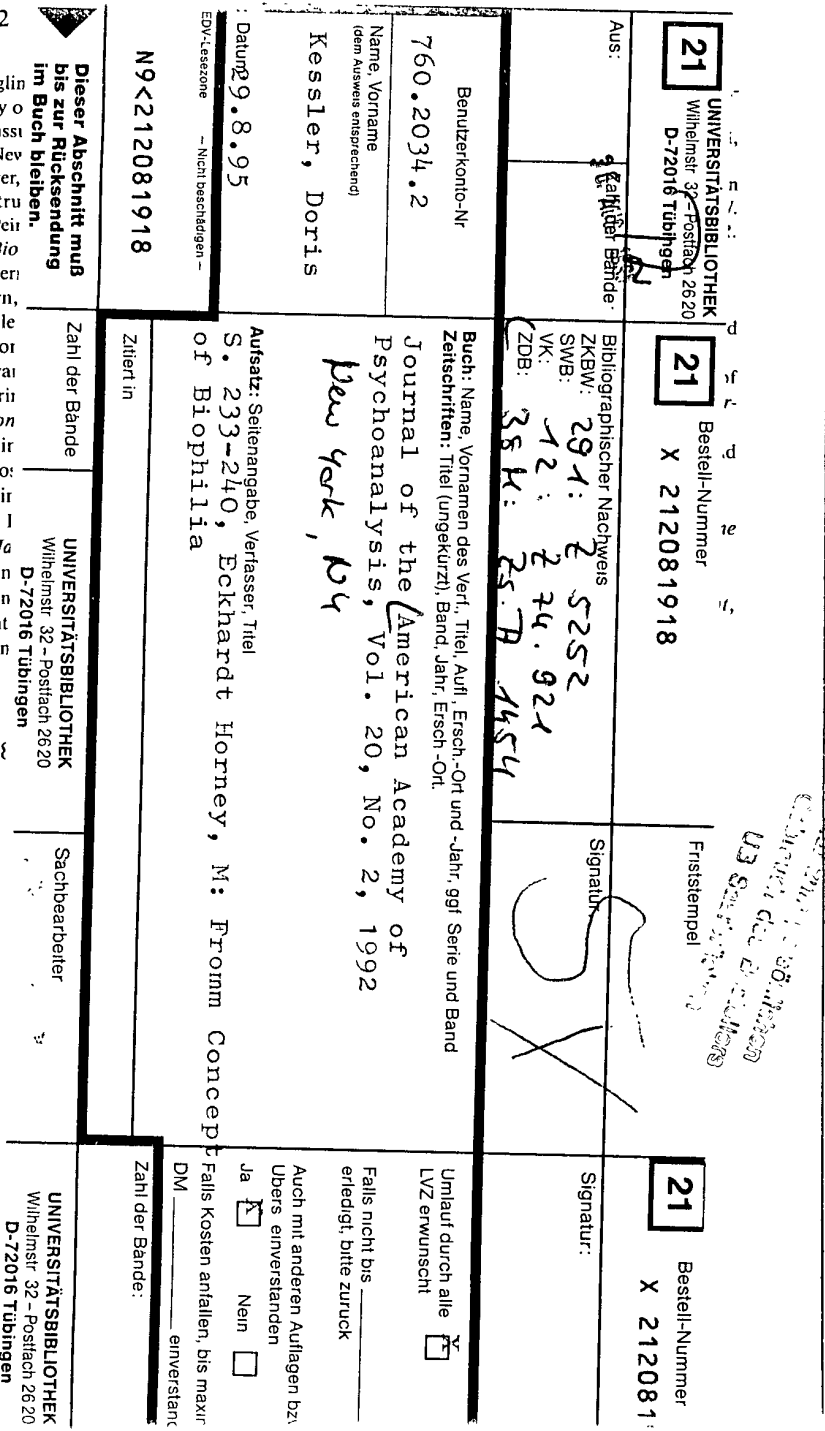 21
UNIVERSITÄTSBIBLIOTHEK
Wilhelmstr 32 – Postfach 26 20
D-72016 Tübingen
Aus:
Zahl der Bände:
Benutzerkonto-Nr
760.2034.2
Name, Vorname
(dem Ausweis entsprechend)
Kessler, Doris
: Datum 29.8.95
EDV-Lesezone – Nicht beschädigen –
N9<212081918
Dieser Abschnitt muß
bis zur Rücksendung
im Buch bleiben.
21
Bestell-Nummer
X 212081918
Friststempel
Bibliographischer Nachweis
ZKBW: 291: Z 5252
SWB:
VK: 12: Z 74.921
ZDB: 38 M: Zs. A 1454
Signatur:
Buch: Name, Vornamen des Verf., Titel, Aufl., Ersch.-Ort und -Jahr, ggf Serie und Band
Zeitschriften: Titel (ungekürzt), Band, Jahr, Ersch -Ort.
Journal of the American Academy of
Psychoanalysis, Vol. 20, No. 2, 1992
New York, NY
Aufsatz: Seitenangabe, Verfasser, Titel
S. 233-240, Eckhardt Horney, M: Fromm Concept
of Biophilia
Zitiert in
Zahl der Bände
UNIVERSITÄTSBIBLIOTHEK
Wilhelmstr 32 – Postfach 26 20
D-72016 Tübingen
Sachbearbeiter
21
Bestell-Nummer
X 212081
Signatur:
Umlauf durch alle
LVZ erwunscht
Falls nicht bis
erledigt, bitte zuruck
Auch mit anderen Auflagen bzv
Ubers einverstanden
Ja Nein
Falls Kosten anfallen, bis maxir
DM einverstanc
Zahl der Bände:
UNIVERSITÄTSBIBLIOTHEK
Wilhelmstr 32 – Postfach 26 20
D-72016 Tübingen